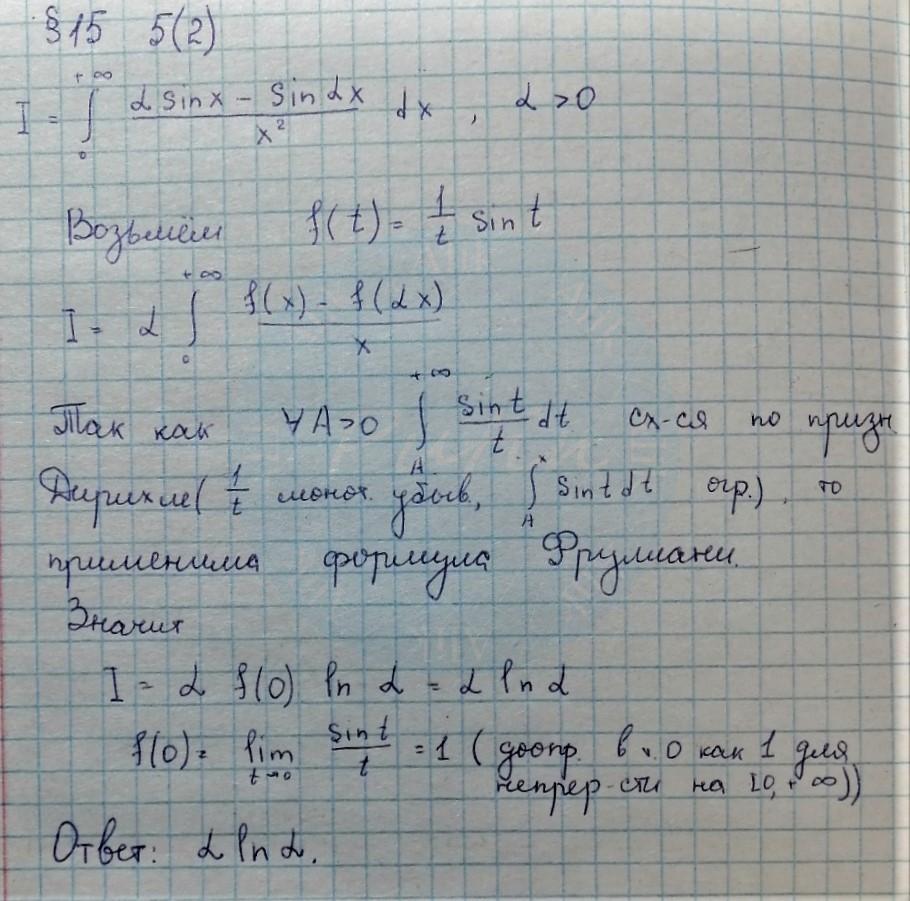 §15 5(2)
I = ∫₀^{+∞} (α sin x − sin αx)/x² dx , α > 0
Возьмём f(t) = 1/t sin t
I = α ∫₀^{+∞} (f(x) − f(αx))/x
Так как ∀A>0 ∫_A^{+∞} sin t/t dt сх-ся по призн
Дирихле( 1/t монот. убыв, ∫_A^x sin t dt огр.), то
применима формула Фруллани.
Значит
I = α f(0) ln α = α ln α
f(0) = lim_{t→0} sin t/t = 1 ( доопр. в 0 как 1 для
непрер-сти на [0,+∞))
Ответ: α ln α.